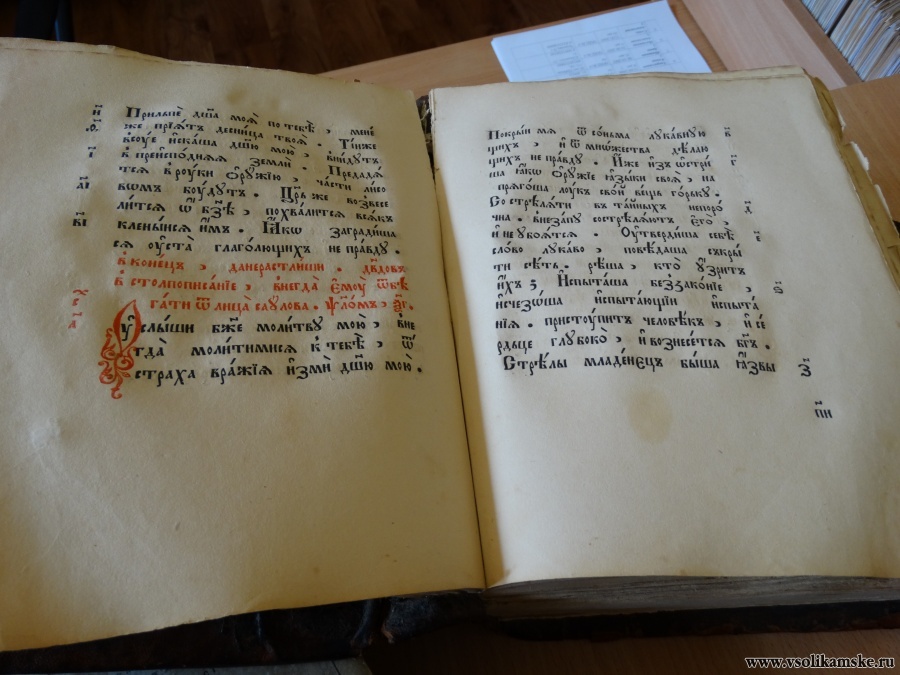 и҃ Прильпѐ дш҃а моѧ̀ по тебѣ̀, менѐ
ѳ҃ же прїѧ́тъ десни́ца твоѧ̀. Ті́и же
всꙋе иска́ша дш҃ю мою̀, вни́дꙋтъ
і҃ в преисподняѧ землѝ. Предадѧ́т
сѧ в рꙋки ѻрꙋ́жїю, ча́сти лисо
а҃і вомъ бꙋ́дꙋтъ. Цр҃ь же возвесе
ли́тсѧ ѡ҆ бз҃ѣ, похва́литсѧ всѧ́къ
в҃і клены́йсѧ и҆́мъ. Ꙗ҆́кѡ загради́ша
сѧ ᲂу҆ста̀ глаго́лющихъ непра́вдꙋ.
в коне́цъ, да не растлиши. дв҃довъ
в столпописа́нїе, внегда̀ є҆мꙋ̀ ѿбѣ
га́ти ѿ лица̀ саꙋ́лова. ѱало́мъ, з҃г.
Оу҆слы́ши бж҃е моли́твꙋ мою̀, вне
гда̀ моли́тимисѧ к тебѣ̀, ѿ
стра́ха вра́жїѧ и҆змѝ дш҃ю мою̀.
Покры́й мѧ ѿ со́ньма лꙋка́внꙋю в҃
щихъ, и҆ ѿ мно́жества дѣ́лаю
щихъ непра́вдꙋ. И҆́же и҆зъѡстри́ г҃
ша ꙗ҆́кѡ ѻ҆рꙋ́жїе ꙗ҆зы́ки своѧ̀, на
прѧго́ша лꙋ́къ сво́й ве́щь го́рькꙋ.
Состре́лѧти въ та́йныхъ непоро́ д҃
чна. внеза́пꙋ сострелѧ́ютъ є҆го̀,
и҆ не ᲂу҆боѧ́тсѧ. Оу҆тверди́ша себѣ̀ є҃
сло́во лꙋка́во, повѣ́даша съкры́
ти сѣ́ть. рѣ́ша, кто̀ ᲂу҆́зритъ
и҆́хъ; И҆спыта́ша беззако́нїе, ѕ҃
и҆счезо́ша и҆спыта́ющїи и҆спыта̑
нїѧ. пристꙋ́питъ человѣ́къ, и҆ се́
рдьце глꙋбоко̀, и҆ вознесе́тсѧ бг҃ъ.
Стрѣ́лы младе́нецъ бы́ша ꙗ҆́звы з҃
пи҃